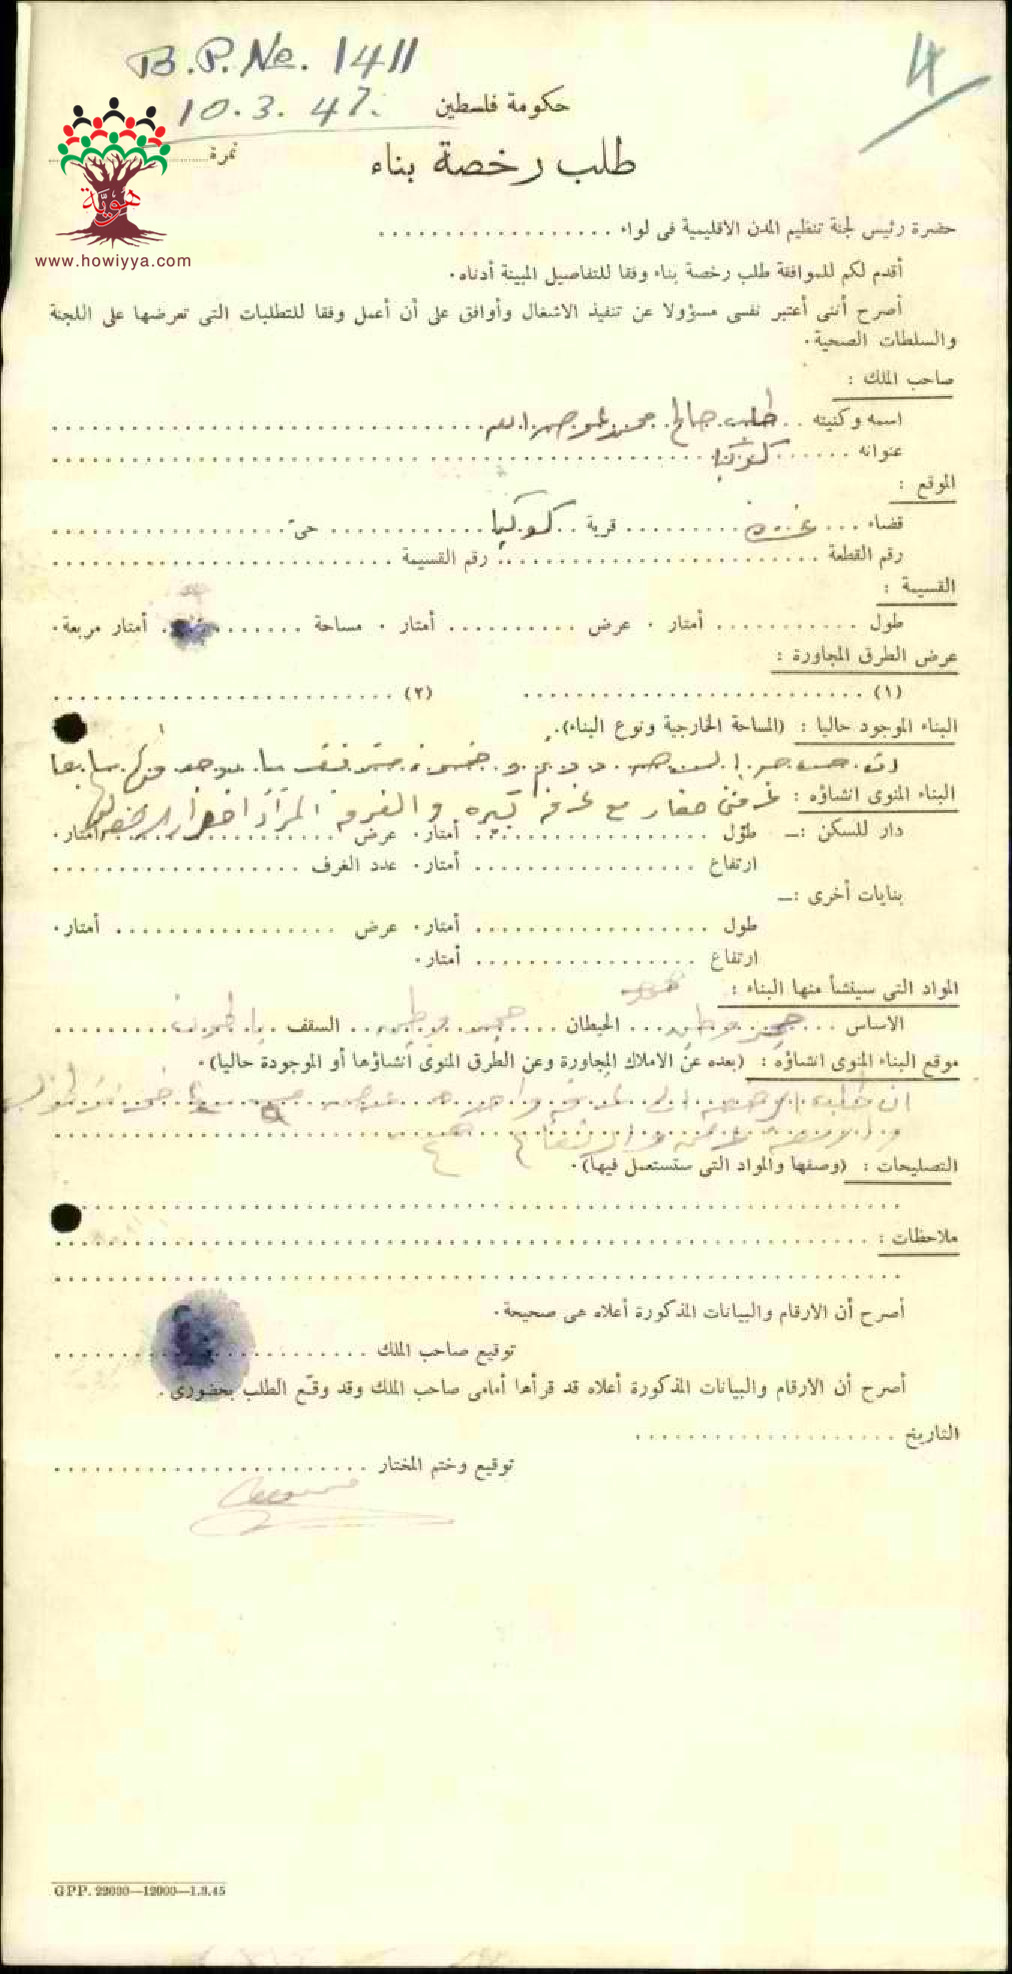 B.P.No. 1411
4
10.3.47.
حكومة فلسطين
نمرة
طلب رخصة بناء
هوية
www.howiyya.com
حضرة رئيس لجنة تنظيم المدن الاقليمية في لواء
أقدم لكم للموافقة طلب رخصة بناء وفقا للتفاصيل المبينة أدناه.
أصرح أنني أعتبر نفسي مسؤولا عن تنفيذ الاشغال وأوافق على أن أعمل وفقا للمتطلبات التي تعرضها على اللجنة
والسلطات الصحية.
صاحب الملك :
اسمه وكنيته طلب صالح محمد
عنوانه كوكبا
الموقع :
قضاء غزة قرية كوكبا حي
رقم القطعة رقم القسيمة
القسيمة :
طول أمتار. عرض أمتار. مساحة أمتار مربعة.
عرض الطرق المجاورة :
(١) (٢)
البناء الموجود حاليا : (المساحة الخارجية ونوع البناء).
سابقا
البناء المنوى انشاؤه : غرفتين صغار مع غرفة كبيره
دار للسكن :ــ طول أمتار. عرض أمتار.
ارتفاع أمتار. عدد الغرف
بنايات أخرى :ــ
طول أمتار. عرض أمتار.
ارتفاع أمتار.
المواد التي سينشأ منها البناء :
الاساس حجر وطين الحيطان حجر وطين السقف
موقع البناء المنوى انشاؤه : (بعده عن الاملاك المجاورة وعن الطرق المنوى انشاؤها أو الموجودة حاليا).
التصليحات : (وصفها والمواد التي ستستعمل فيها).
ملاحظات :
أصرح أن الارقام والبيانات المذكورة أعلاه هي صحيحة.
توقيع صاحب الملك
أصرح أن الارقام والبيانات المذكورة أعلاه قد قرأها أمامي صاحب الملك وقد وقّع الطلب بحضوري.
التاريخ
توقيع وختم المختار
GPP. 29030—12000—1.9.45